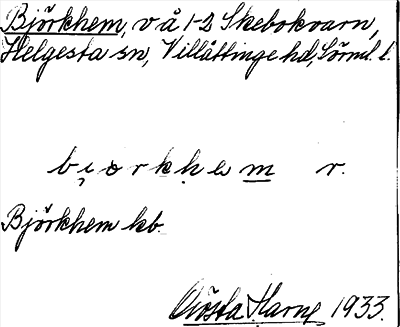 Björkhem, v å 1-2 Skebokvarn,
Helgesta sn, Villåttinge hd, Sörml. l.
bi̯ørkḥem r.
Björkhem kb.
Gösta Harne 1933.